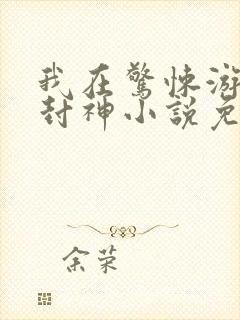 我在驚悚游
封神小說免
余荣